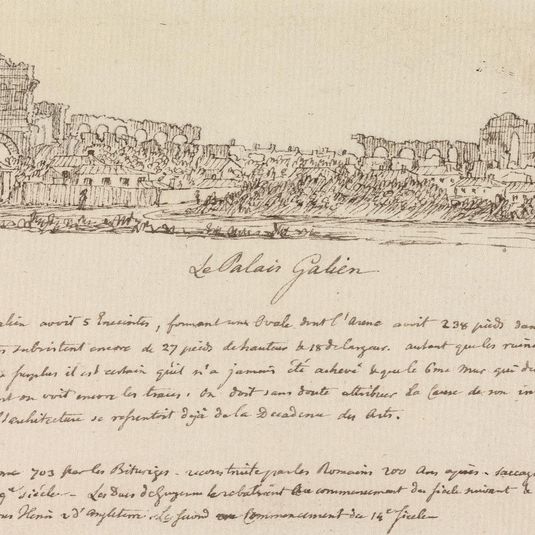 Le Palais Galien
alien avoit 5 Enceintes, formant une Ovale dont l'Arene avoit 238 pieds dan
subsistent encore de 27 pieds de hauteur & 18 de largeur. autant que les ruine
il est certain qu'il n'a jamais été achevé & que le 6me Mur qui d
on voit encore les traces, On doit sans doute attribuer la Cause de son in
l'architecture se ressentoit déja de la Decadence des Arts.
703 par les Bituriges - reconstruite par les Romains 200 Ans après - saccag
9e siécle - Les Ducs de Guyenne le rebatirent Au commencement du siecle suivant &
Henri 2 d'Angleterre - le second au Commencement du 14e siecle